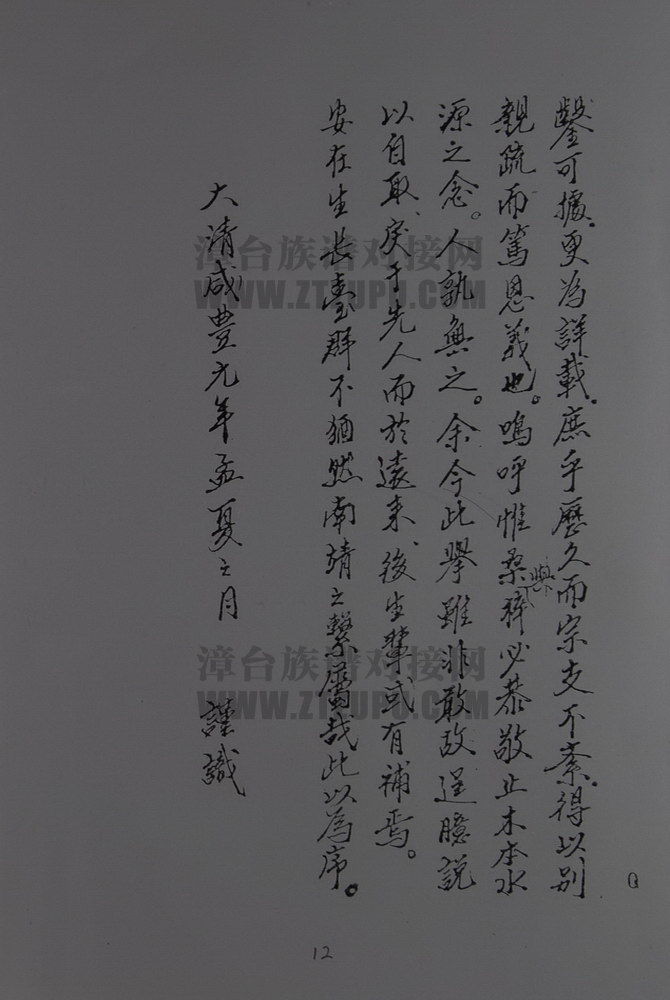 鑿可據。更為詳載。庶乎歷久而宗支不紊。得以別
親疏而篤恩義也。嗚呼惟桑與梓必恭敬止木本水
源之念。人孰無之。余今此舉雖非敢故逞臆說
以自取、戾于先人而於遠来、後生輩或有補焉。
安在生长臺群不猶然南靖之繫屬哉此以為序。
大清咸豊元年孟夏之月 謹識
12
漳台族谱对接网
WWW.ZTZUPU.COM
漳台族谱对接网
WWW.ZTZUPU.COM